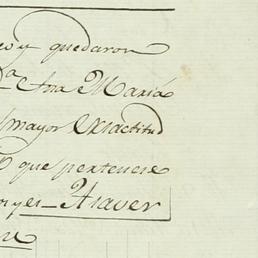 y quedaron
D.a Ana Maria
mayor Exactitud
que pertenese
Haver